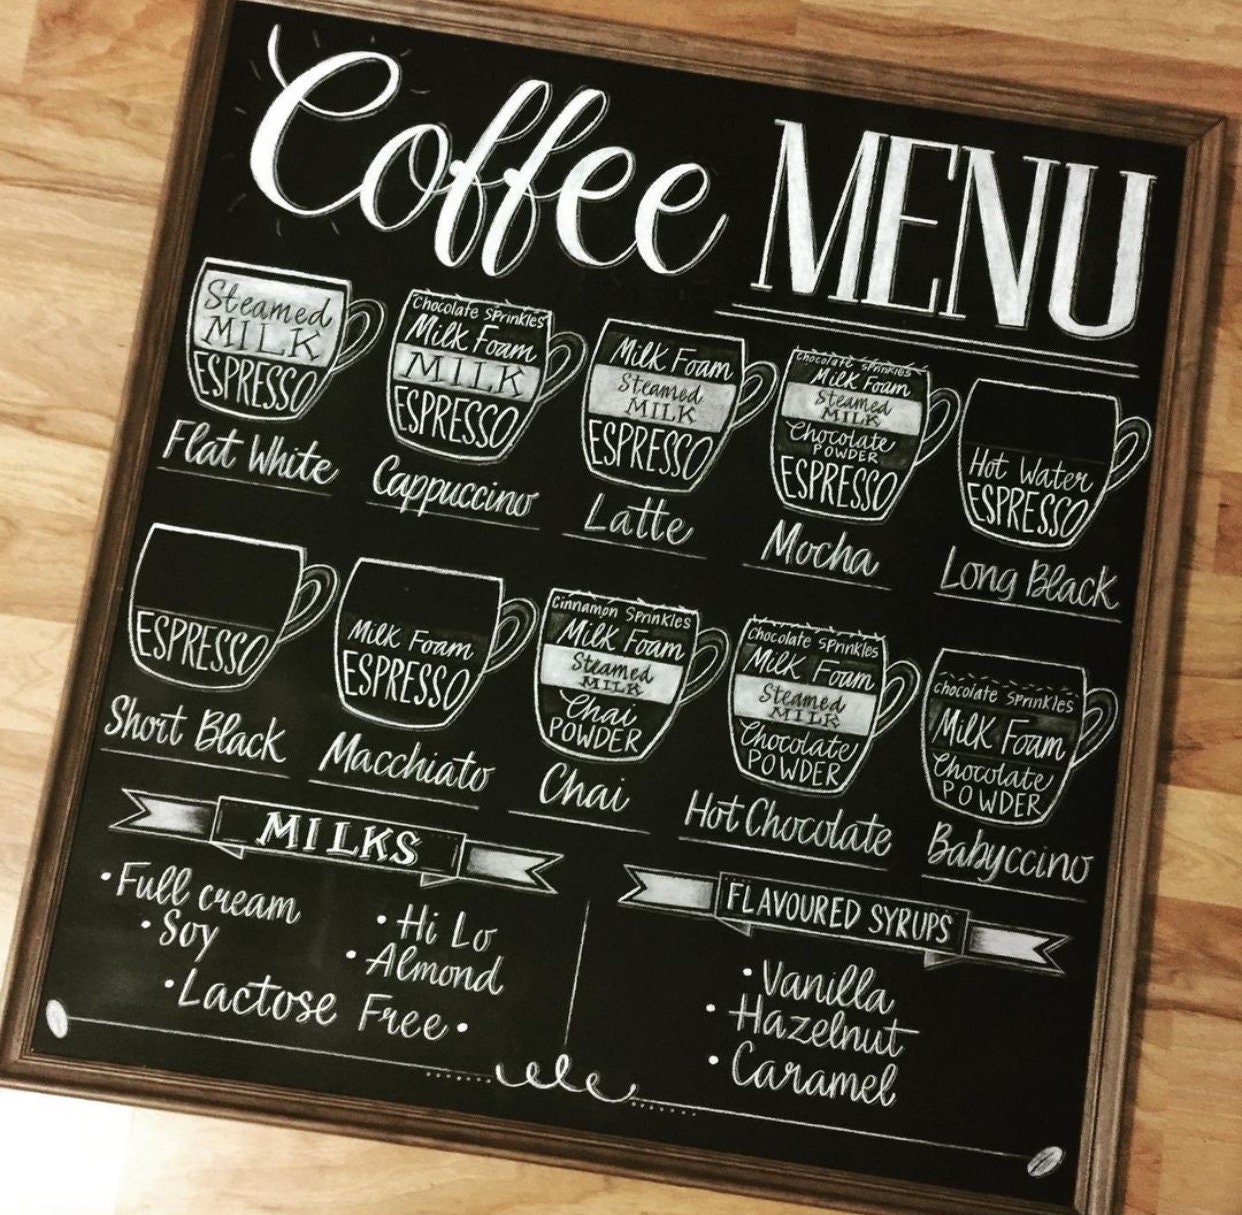 Coffee MENU
Steamed
MILK
ESPRESSO
Flat White
Chocolate Sprinkles
Milk Foam
MILK
ESPRESSO
Cappuccino
Milk Foam
Steamed
MILK
ESPRESSO
Latte
Chocolate Sprinkles
Milk Foam
Steamed
MILK
Chocolate
POWDER
ESPRESSO
Mocha
Hot Water
ESPRESSO
Long Black
ESPRESSO
Short Black
Milk Foam
ESPRESSO
Macchiato
Cinnamon Sprinkles
Milk Foam
Steamed
MILK
Chai
POWDER
Chai
Chocolate Sprinkles
Milk Foam
Steamed
MILK
Chocolate
POWDER
Hot Chocolate
Chocolate Sprinkles
Milk Foam
Chocolate
POWDER
Babyccino
MILKS
• Full cream
• Soy
• Hi Lo
• Almond
• Lactose Free •
FLAVOURED SYRUPS
• Vanilla
• Hazelnut
• Caramel